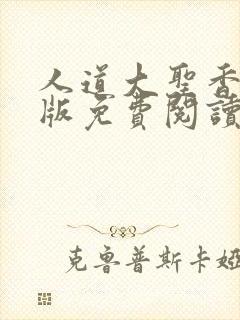 人道大聖香
版免費閱讀
克魯普斯卡婭